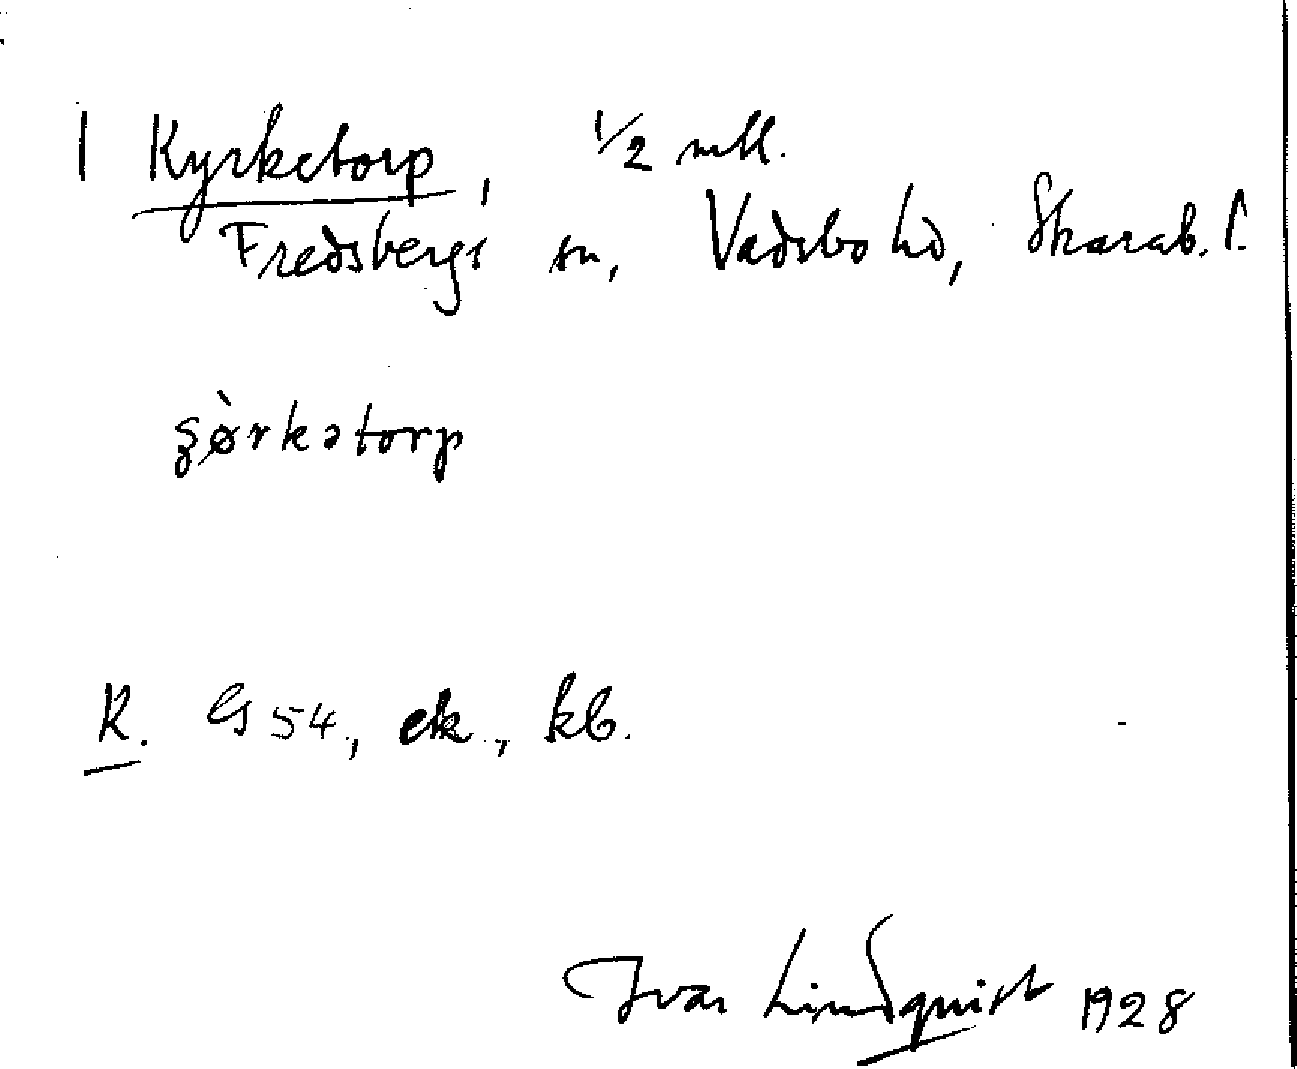 1 Kyrketorp, 1/2 mtl.
Fredsbergs sn, Vadsbo hd, Skarab. l.
ʂø̀rkətorp
R. G 54, ek., kb.
Ivar Lindquist 1928